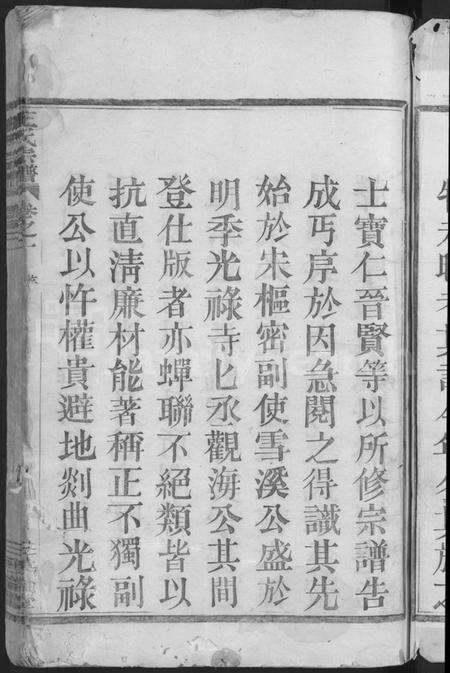 士寶仁晉賢等以所修宗譜告
成丐序於因急閱之得識其先
始於宋樞密副使雪溪公盛於
明季光祿寺匕丞觀海公其間
登仕版者亦蟬聯不絕類皆以
抗直淸廉材能著稱正不獨副
使公以忤權貴避地剡曲光祿
王氏宗譜
卷之一